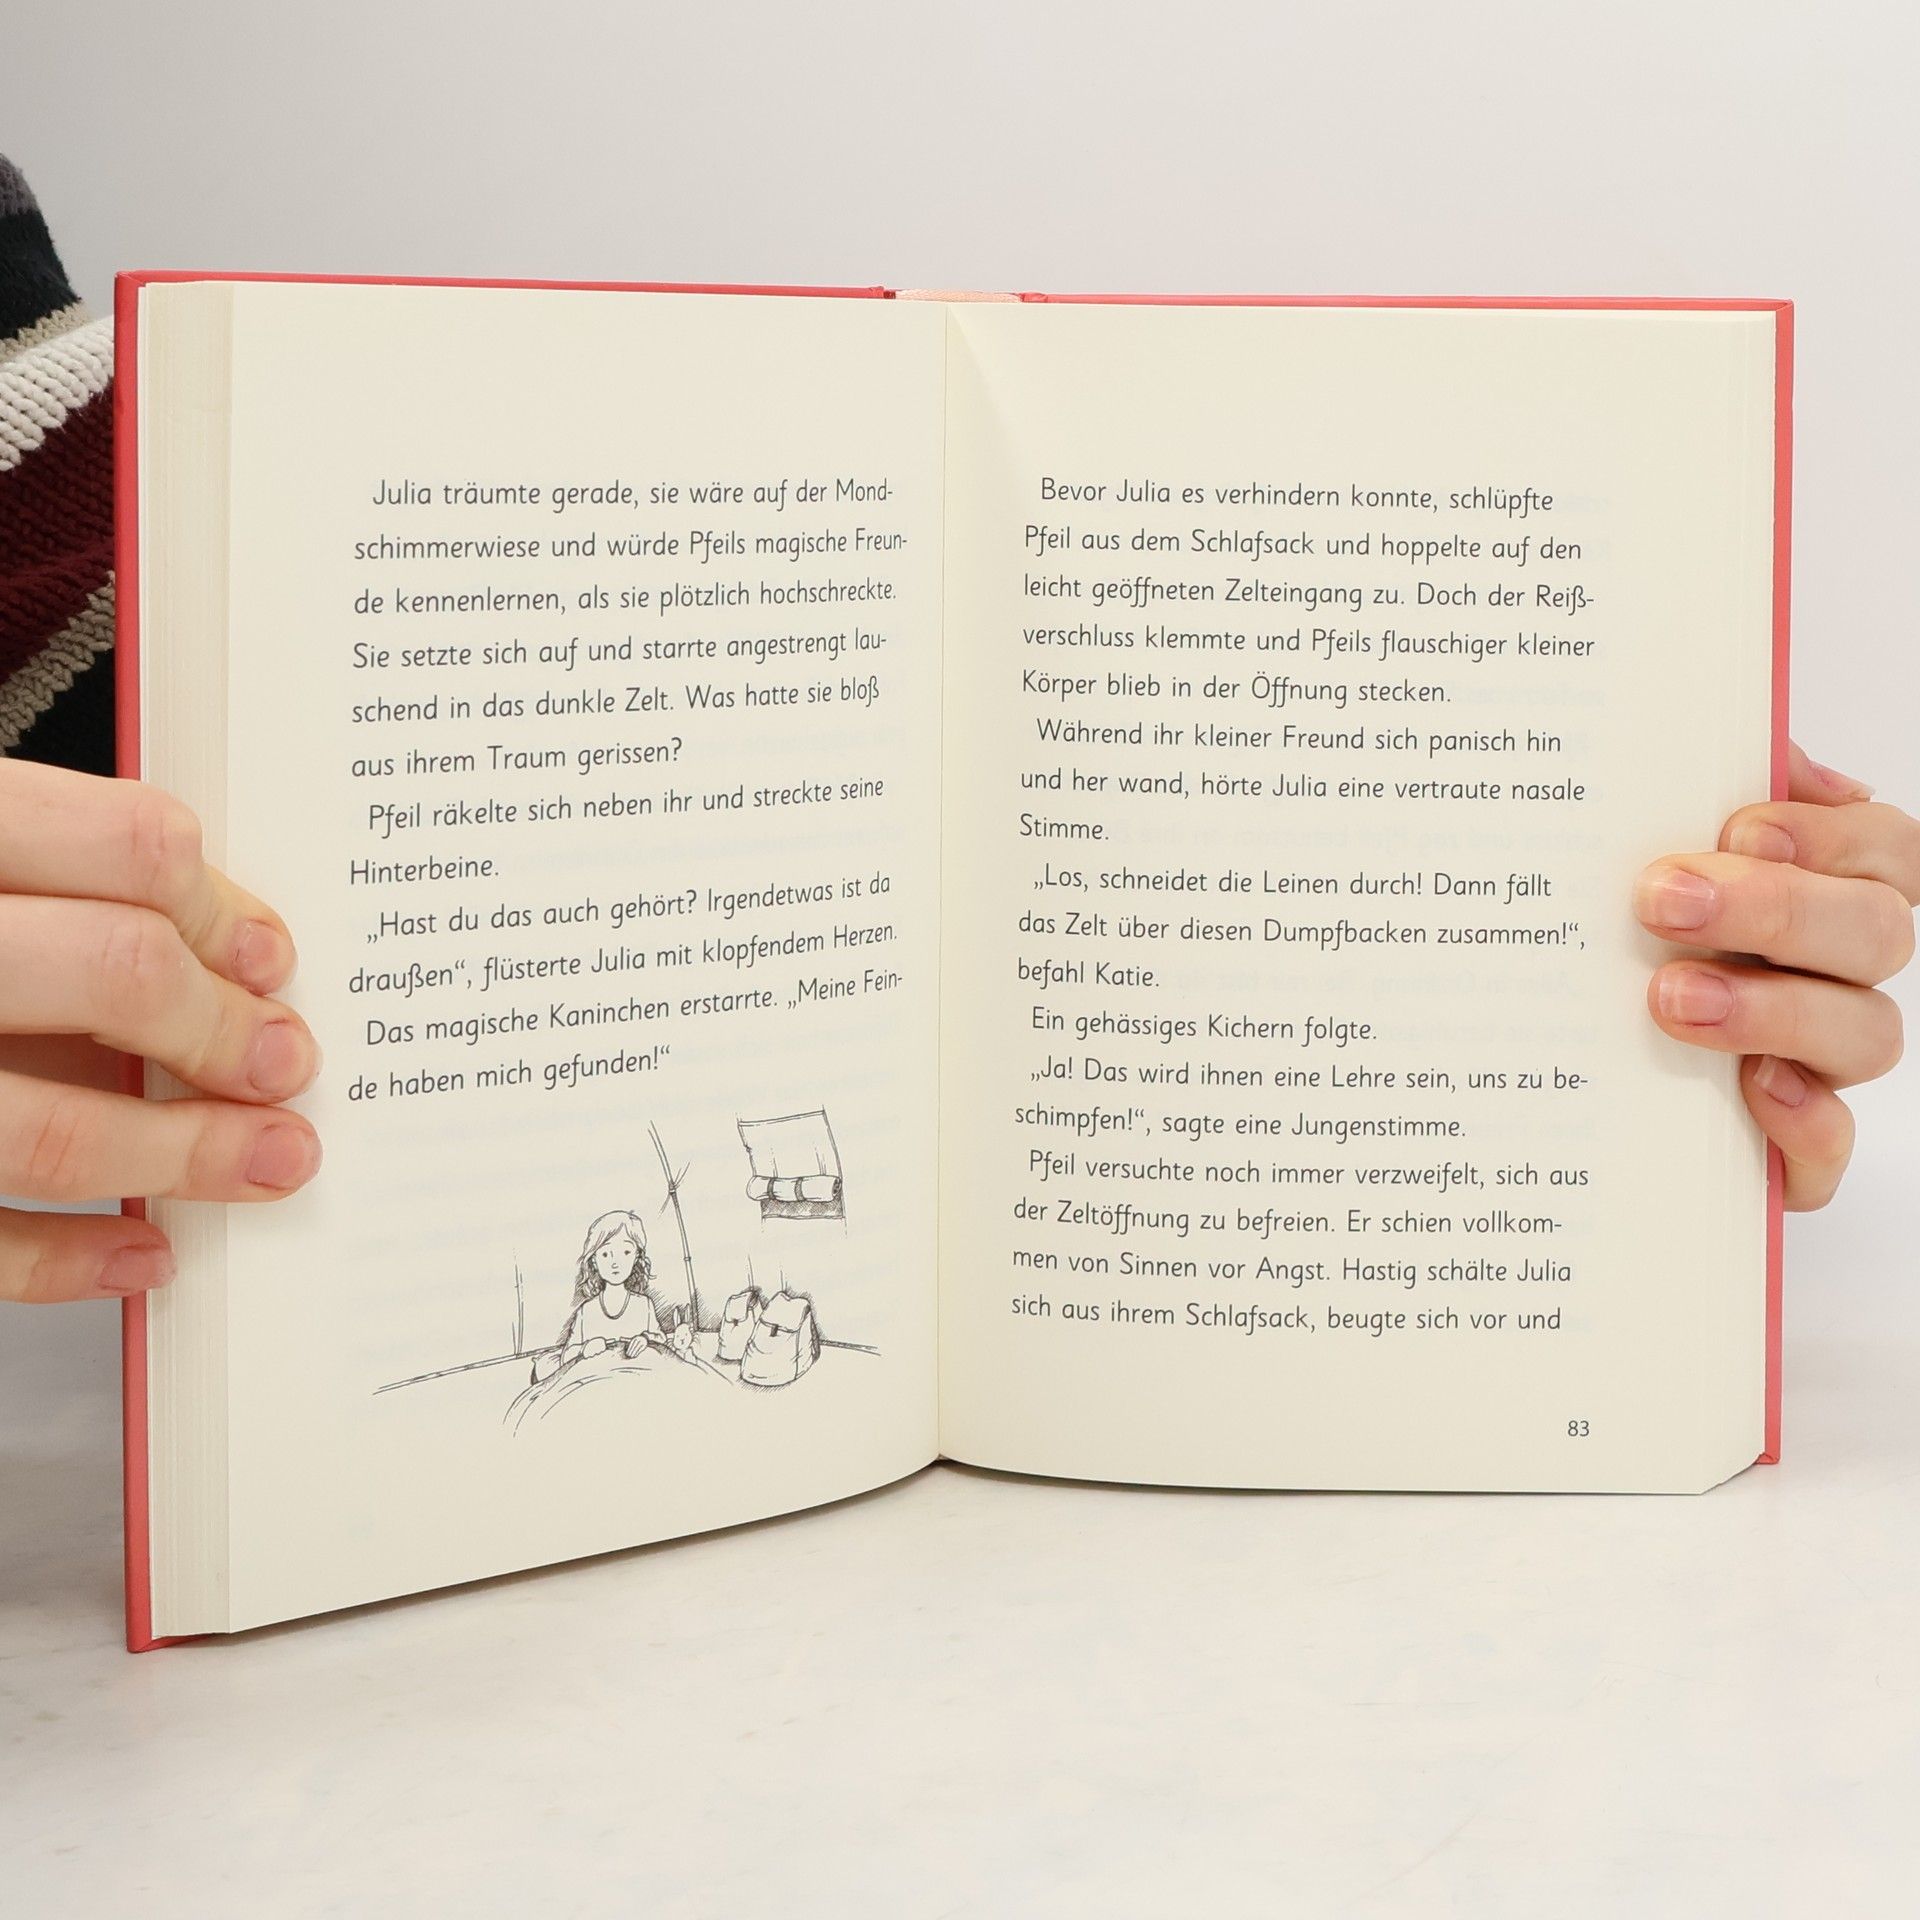 Julia träumte gerade, sie wäre auf der Mond-
schimmerwiese und würde Pfeils magische Freun-
de kennenlernen, als sie plötzlich hochschreckte.
Sie setzte sich auf und starrte angestrengt lau-
schend in das dunkle Zelt. Was hatte sie bloß
aus ihrem Traum gerissen?
Pfeil räkelte sich neben ihr und streckte seine
Hinterbeine.
„Hast du das auch gehört? Irgendetwas ist da
draußen“, flüsterte Julia mit klopfendem Herzen.
Das magische Kaninchen erstarrte. „Meine Fein-
de haben mich gefunden!“
Bevor Julia es verhindern konnte, schlüpfte
Pfeil aus dem Schlafsack und hoppelte auf den
leicht geöffneten Zelteingang zu. Doch der Reiß-
verschluss klemmte und Pfeils flauschiger kleiner
Körper blieb in der Öffnung stecken.
Während ihr kleiner Freund sich panisch hin
und her wand, hörte Julia eine vertraute nasale
Stimme.
„Los, schneidet die Leinen durch! Dann fällt
das Zelt über diesen Dumpfbacken zusammen!“,
befahl Katie.
Ein gehässiges Kichern folgte.
„Ja! Das wird ihnen eine Lehre sein, uns zu be-
schimpfen!“, sagte eine Jungenstimme.
Pfeil versuchte noch immer verzweifelt, sich aus
der Zeltöffnung zu befreien. Er schien vollkom-
men von Sinnen vor Angst. Hastig schälte Julia
sich aus ihrem Schlafsack, beugte sich vor und
83